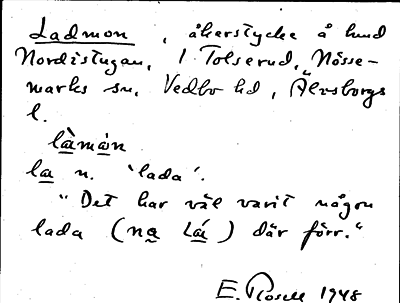 Ladmon , åkerstycke å hmd
Nordistugan, 1 Tolserud, Nösse-
marks sn, Vedbo hd, Älvsborgs
l.
lȧ̱̀mȧ̱n
la̱ n. 'lada'.
"Det har väl varit någon
lada (na̱ Lȧ̱́) där förr."
E. Rosell 1948